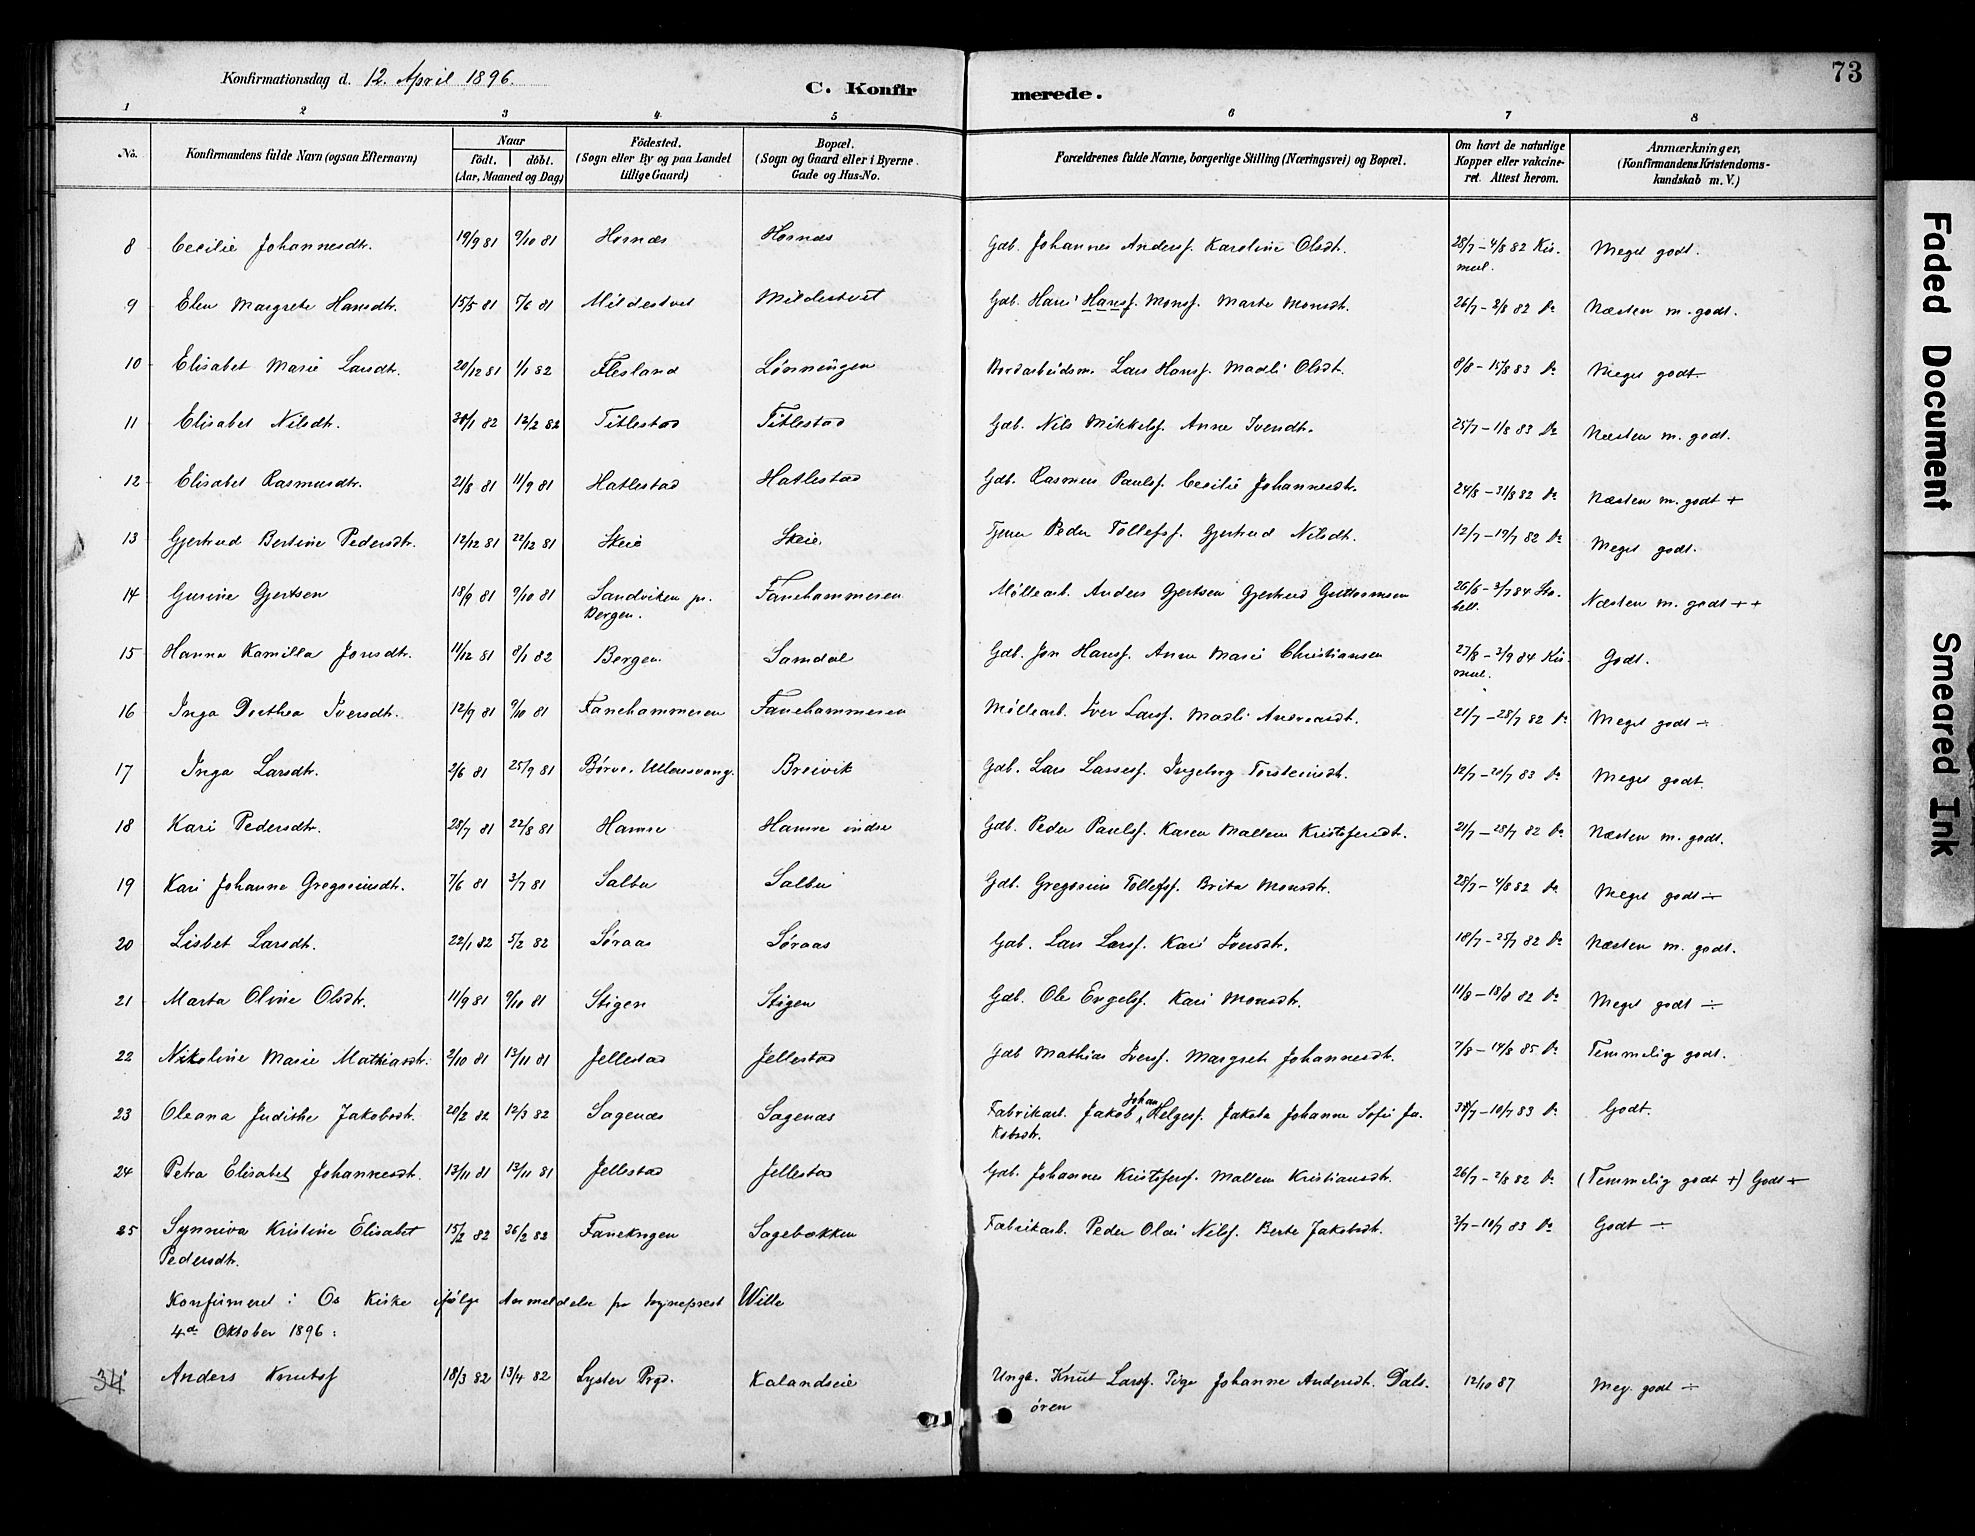 73
Konfirmationsdag d. 12. April 1896.
C. Konfir merede.
1 2 3 4 5 6 7 8
No. Konfirmandens fulde Navn (ogsaa Efternavn) Naar födt. döbt. (Aar, Maaned og Dag) Födested. (Sogn eller By og paa Landet tillige Gaard) Bopæl. (Sogn og Gaard eller i Byerne Gade og Hus-No. Forældrenes fulde Navne, borgerlige Stilling (Næringsvei) og Bopæl. Om havt de naturlige Kopper eller vakcineret. Attest herom. Anmærkninger, (Konfirmandens Kristendomskundskab m. V.)
8 Cecilie Johannesdtr. 19/9 81 9/10 81 Hornæs Hornæs Gdb. Johannes Anderss. Karoline Olsdt. 28/7 - 4/8 82 Kismul. Meget godt.
9 Elen Margrete Hansdtr. 15/5 81 5/6 81 Mildestvet Mildestvet Gdb. Hans Hanss. Monss. Marte Monsdt. 26/7 - 2/8 82 Do Næsten m. godt.
10 Elisabet Marie Larsdtr. 20/12 81 1/1 82 Flesland Lönningen Jordarbeidsm. Lars Hanss. Madli Olsdt. 8/8 - 15/8 83 Do Meget godt.
11 Elisabet Nilsdt. 31/1 82 12/2 82 Titlestad Titlestad Gdb. Nils Mikkels. Anna Iversdt. 25/7 - 1/8 83 Do Næsten m. godt.
12 Elisabet Rasmusdtr. 21/8 81 11/9 81 Hatlestad Hatlestad Gdb. Rasmus Paulss. Cecilie Johannesdt. 24/8 - 31/8 82 Do Næsten m. godt +
13 Gjertrud Bertine Pedersdtr. 12/12 81 22/12 81 Skeie Skeie. Tjener Peder Tollefss. Gjertrud Nilsdt. 12/7 - 19/7 82 Do Meget godt.
14 Gurine Gjertsen 18/9 81 9/10 81 Sandviken pr. Bergen. Fanehammeren Möllearb. Anders Gjertsen Gjertrud Guttormsen 26/6 - 3/7 84 Næsten m. godt + +
15 Hanna Kamilla Jonsdt. 11/12 81 8/1 82 Bergen Samdal Gdb. Jon Hanss. Anna Marie Christiansen 27/8 - 3/9 84 Kismul. Godt.
16 Inga Dorthea Iversdt. 12/9 81 9/10 81 Fanehammeren Fanehammeren Möllearb. Iver Larss. Madli Andreasdt. 21/7 - 28/7 82 Do Meget godt ÷
17 Inga Larsdtr. 2/6 81 25/9 81 Børve, Ullensvang. Breivik Gdb. Lars Larsess. Ingeborg Torsteinsdt. 12/7 - 20/7 83 Do Meget godt.
18 Kari Pedersdtr. 28/7 81 22/8 81 Hamre Hamre indre Gdb. Peder Paulss. Karen Mallem Kristofersdt. 21/7 - 28/7 82 Do Næsten m. godt.
19 Kari Johanne Gregoriusdt. 7/6 81 3/7 81 Salbu Salbu Gdb. Gregorius Tollefss. Brita Monsdtr. 28/7 - 4/8 82 Do Meget godt ÷
20 Lisbet Larsdt. 22/1 82 5/2 82 Söraas Söraas Gdb. Lars Larss. Kari Iversdtr. 18/7 - 25/7 82 Do Næsten m. godt.
21 Marta Oline Olsdtr. 11/9 81 9/10 81 Stigen Stigen Gdb. Ole Engelss. Kari Monsdtr. 11/8 - 18/8 82 Do Meget godt ÷
22 Nikoline Marie Mathiasdt. 2/10 81 13/11 81 Jellestad Jellestad Gdb Mathias Iverss. Margrete Johannesdt. 7/8 - 14/8 85 Do Temmelig godt.
23 Oleana Judithe Jakobsdt. 20/2 82 12/3 82 Sagenæs Sagenæs Fabrikarb. Jakob Johan Helgess. Jakobia Johanne Sofie Jakobsdtr. 3/7 - 10/7 83 Do Godt.
24 Petra Elisabet Johannesdt. 13/11 81 13/11 81 Jellestad Jellestad Gdb. Johannes Kristoferss. Mallem Kristiansdt. 26/7 - 2/8 82 Do (Temmelig godt +) Godt ÷
25 Synniva Kristine Elisabet Pedersdtr. 15/2 82 26/2 82 Fanekrogen Sagebækken Fabrikarb. Peder Olai Nilss. Berte Jakobsdt. 3/7 - 10/7 83 Do Godt ÷
Konfirmeret i Os Kirke ifölge Anmeldelse fra Sogneprest Wille
4de Oktober 1896:
34 Anders Knutss 18/3 82 13/4 82 Lyster Prgd. Kalandseie Ungk. Knut Larss. Pige Johanne Andersdt. Dalsören 12/10 87 Meg. godt ÷
Faded Document
Smeared Ink